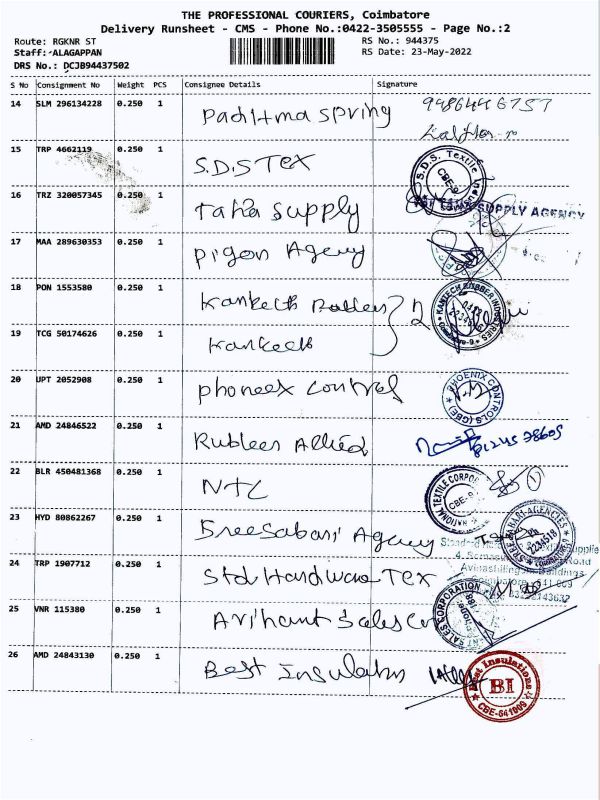 THE PROFESSIONAL COURIERS, Coimbatore
Delivery Runsheet - CMS - Phone No.:0422-3505555 - Page No.:2
Route: RGKNR ST
RS No.: 944375
Staff: ALAGAPPAN
RS Date: 23-May-2022
DRS No.: DCJB94437502
S No Consignment No Weight PCS Consignee Details Signature
14 SLM 296134228 0.250 1 Padltma Spring
15 TRP 4662119 0.250 1 S.D.S TEX
S.D.S. Textile
CBE-9
16 TRZ 320057345 0.250 1 Taha Supply
SUPPLY AGENCY
17 MAA 289630353 0.250 1 Pigon Agency
18 PON 1553580 0.250 1 Kankech
KANTECH RUBBER INDUSTRIES
19 TCG 50174626 0.250 1 Kankech
20 UPT 2052908 0.250 1 Phoneex Control
PHOENIX CONTROLS (CBE)
21 AMD 24846522 0.250 1 Rublees Allied
22 BLR 450481368 0.250 1 NTC
NATIONAL TEXTILE CORPO
CBE-9
23 HYD 80862267 0.250 1 Sreesabari Agency
SREE SABARI AGENCIES
2234518
24 TRP 1907712 0.250 1 Std Hardware Tex
Coimbatore - 641 009
25 VNR 115380 0.250 1 Arihant Sales
SALES CORPORATION
26 AMD 24843130 0.250 1 Best Insulation
Best Insulations
BI
CBE-641009